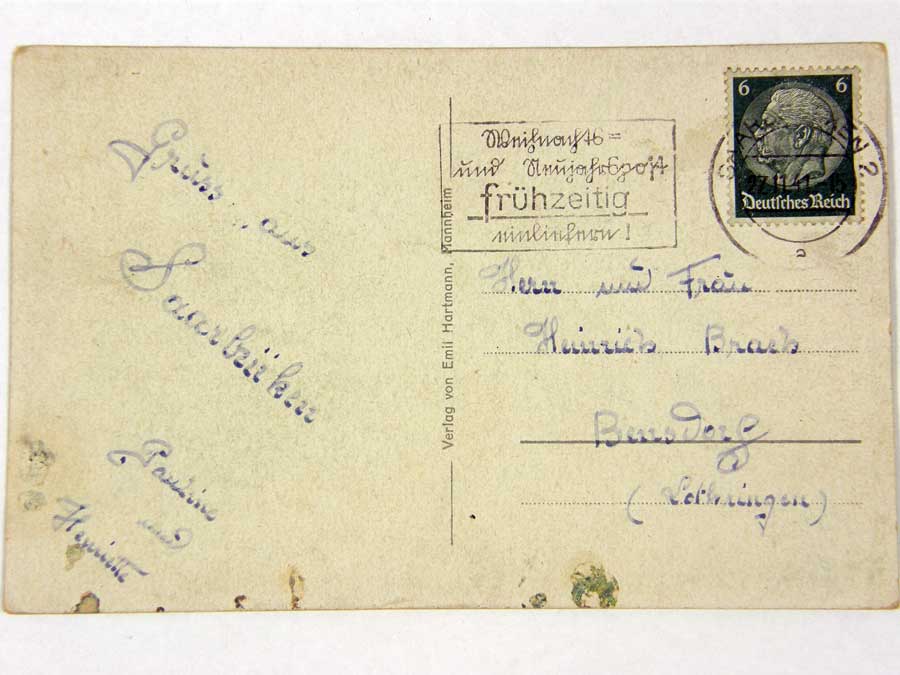 Gruss aus
Saarbrücken
Pauline
und
Henriette
Verlag von Emil Hartmann, Mannheim
Weihnachts=
und Neujahrspost
frühzeitig
einliefern!
6 6
Deutsches Reich
SAARBRÜCKEN 2
27.11.41
a
Herrn und Frau
Heinrich Brach
Bensdorf
(Lothringen)